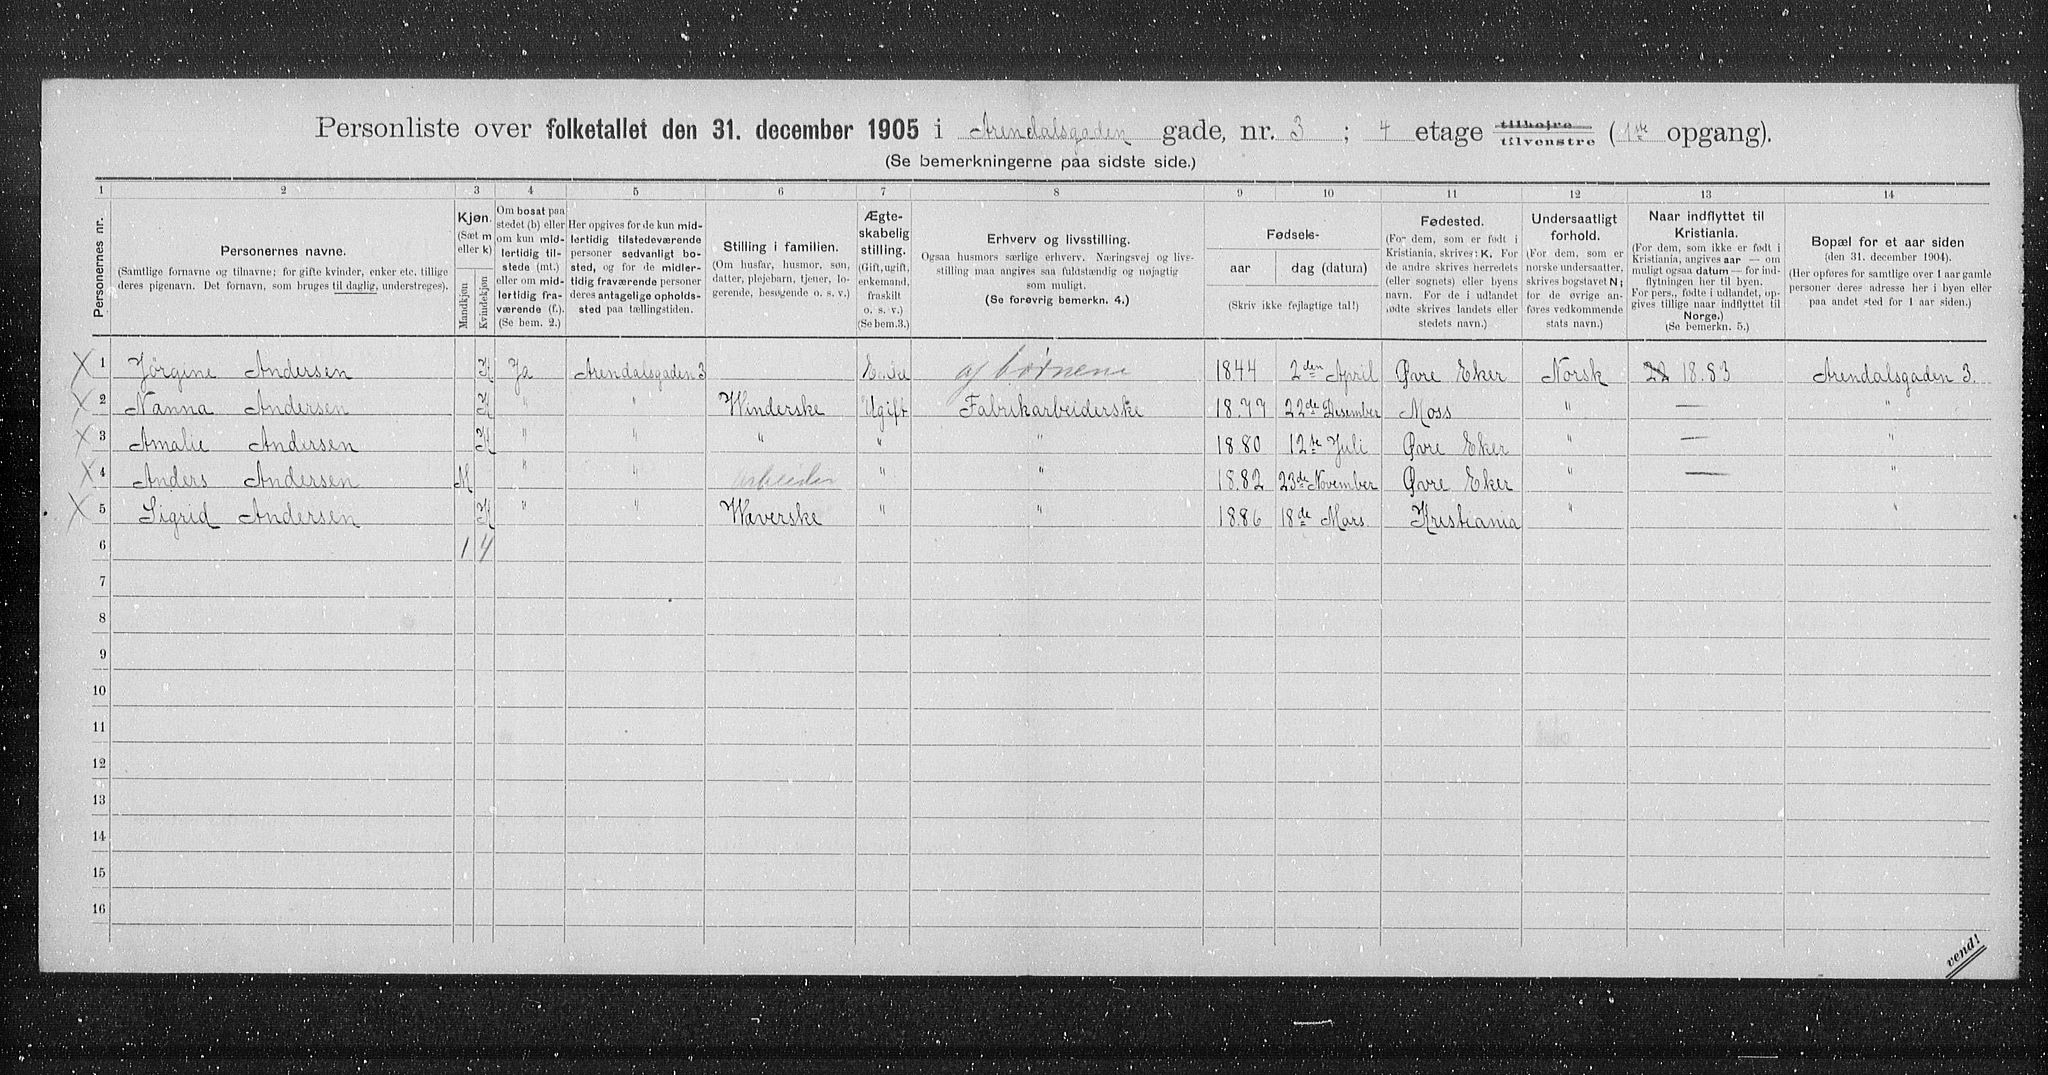 Personliste over folketallet den 31. december 1905 i Arendalsgaden gade, nr. 3 ; 4 etage tilhøjre tilvenstre (1ste opgang).
(Se bemerkningerne paa sidste side.)
1 2 3 4 5 6 7 8 9 10 11 12 13 14
Personernes nr.
Personernes navne.
(Samtlige fornavne og tilnavne; for gifte kvinder, enker etc. tillige
deres pigenavn. Det fornavn, som bruges til daglig, understreges).
Kjøn.
(Sæt m
eller k)
Mandkjøn
Kvindekjøn
Om bosat paa
stedet (b) eller
om kun mid-
lertidig til-
stede (mt.)
eller om mid-
lertidig fra-
værende (f.).
(Se bem. 2.)
Her opgives for de kun mid-
lertidig tilstedeværende
personer sedvanligt bo-
sted, og for de midler-
tidig fraværende personer
deres antagelige opholds-
sted paa tællingstiden.
Stilling i familien.
(Om husfar, husmor, søn,
datter, plejebarn, tjener, lo-
gerende, besøgende o. s. v.)
Ægte-
skabelig
stilling.
(Gift, ugift,
enkemand,
fraskilt
o. s. v.)
(Se bem.3.)
Erhverv og livsstilling.
Ogsaa husmors særlige erhverv. Næringsvej og livs-
stilling maa angives saa fuldstændig og nøjagtig
som muligt.
(Se forøvrig bemerkn. 4.)
Fødsels-
aar dag (datum)
(Skriv ikke fejlagtige tal!)
Fødested.
(For dem, som er født i
Kristiania, skrives: K. For
de andre skrives herredets
(eller sognets) eller byens
navn. For de i udlandet
fødte skrives landets eller
stedets navn.)
Undersaatligt
forhold.
(For dem, som er
norske undersaatter,
skrives bogstavet N;
for de øvrige an-
føres vedkommende
stats navn.)
Naar indflyttet til
Kristiania.
(For dem, som ikke er født i
Kristiania, angives aar — om
muligt ogsaa datum — for ind-
flytningen her til byen.
For pers., fødte i udlandet, op-
gives tillige naar indflyttet til
Norge.)
(Se bemerkn. 5.)
Bopæl for et aar siden
(den 31. december 1904).
(Her opføres for samtlige over 1 aar gamle
personer deres adresse her i byen eller
paa andet sted for 1 aar siden.)
1 Jørgine Andersen K Ja Arendalsgaden 3 Enke af børnene 1844 2den April Øvre Eker Norsk 1883 Arendalsgaden 3.
2 Nanna Andersen K " " Winderske Ugift Fabrikarbeiderske 1877 22de Desember Moss " — "
3 Amalie Andersen K " " " " " 1880 12te Juli Øvre Eker " — "
4 Anders Andersen M " " arbeider " " 1882 23de November Øvre Eker " — "
5 Sigrid Andersen K " " Wæverske " " 1886 18de Mars Kristiania " "
6 1 4
7
8
9
10
11
12
13
14
15
16
vend!